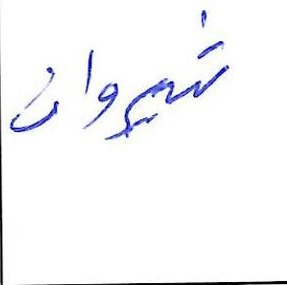 شیروان